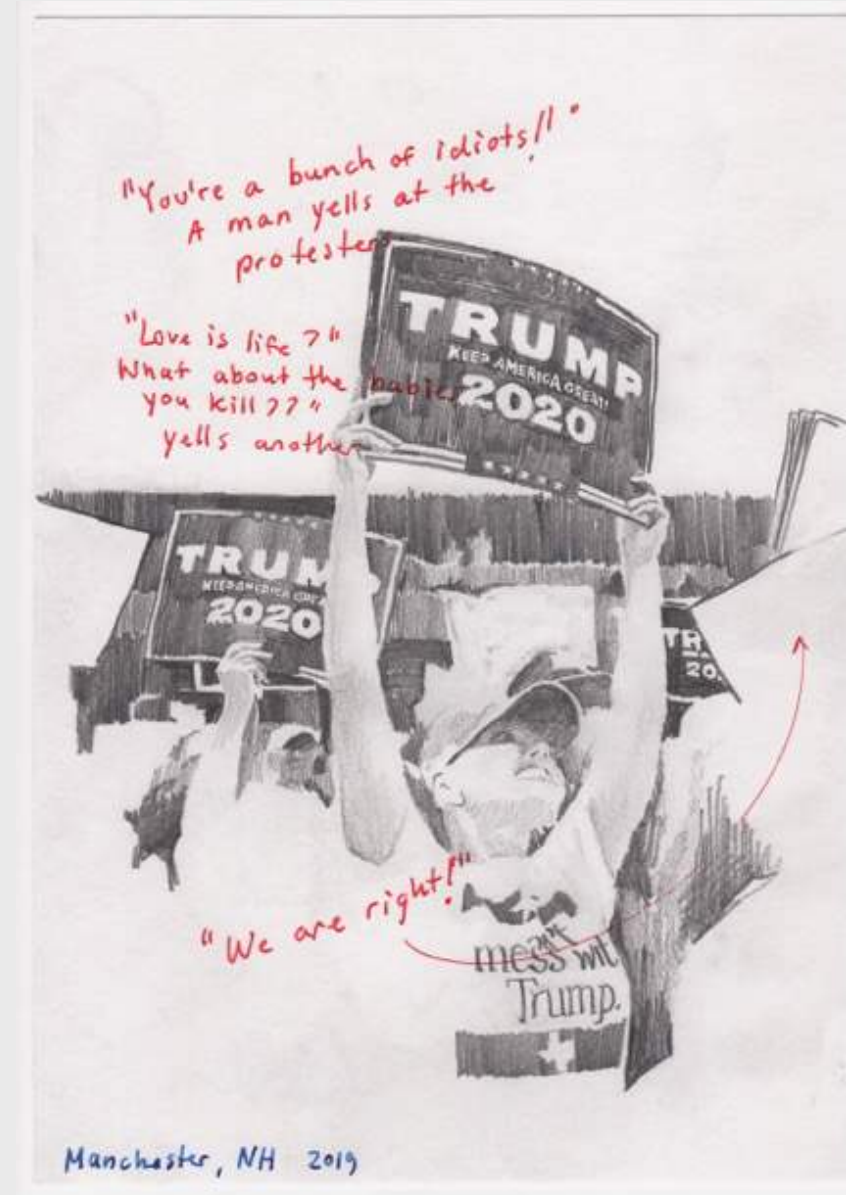 "You're a bunch of idiots!!"
A man yells at the
protesters
"Love is life?"
What about the babies
you kill??"
yells another
TRUMP
KEEP AMERICA GREAT!
2020
TRUMP
KEEP AMERICA GREAT
2020
TR
20
"We are right!"
mess wit
Trump.
Manchester, NH 2019